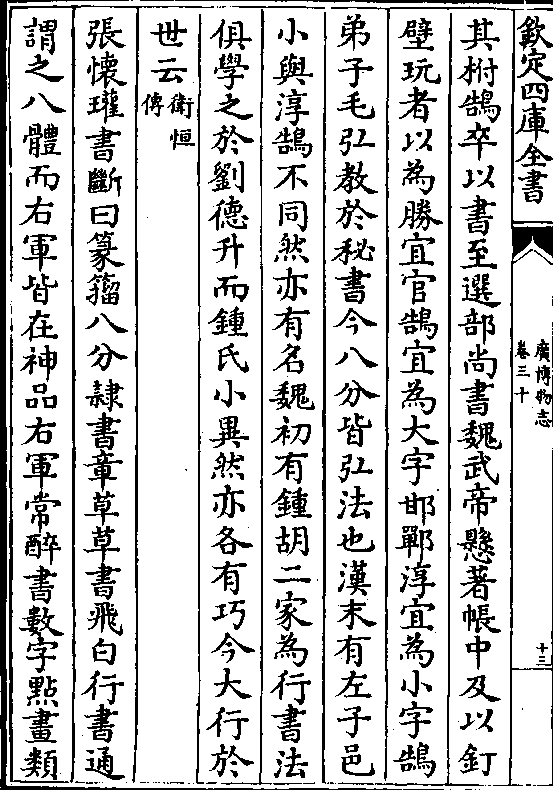 欽定四庫全書
廣博物志
卷三十
十三
其柎鵠卒以書至選部尚書魏武帝懸著帳中及以釘
壁玩者以為勝宜官鵠宜為大字邯鄲淳宜為小字鵠
弟子毛弘教於秘書今八分皆弘法也漢末有左子邑
小與淳鵠不同然亦有名魏初有鍾胡二家為行書法
俱學之於劉德升而鍾氏小異然亦各有巧今大行於
世云衛恒
傳
張懷瓘書斷曰篆籀八分隷書章草草書飛白行書通
謂之八體而右軍皆在神品右軍常醉書數字點畫類